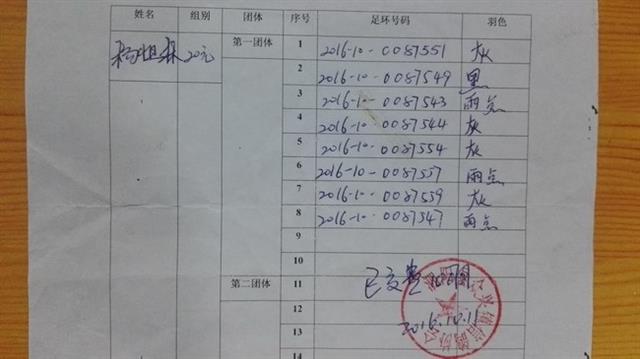 姓名 组别 团体 序号 足环号码 羽色
20元 第一团体 1 2016-10-0087551 灰
2 2016-10-0087549 黑
3 2016-10-0087543 雨点
4 2016-10-0087544 灰
5 2016-10-0087554 灰
6 2016-10-0087557 雨点
7 2016-10-0087559 灰
8 2016-10-0087547 雨点
9
10
第二团体 11 已交费
12 2016.10.11
13
14